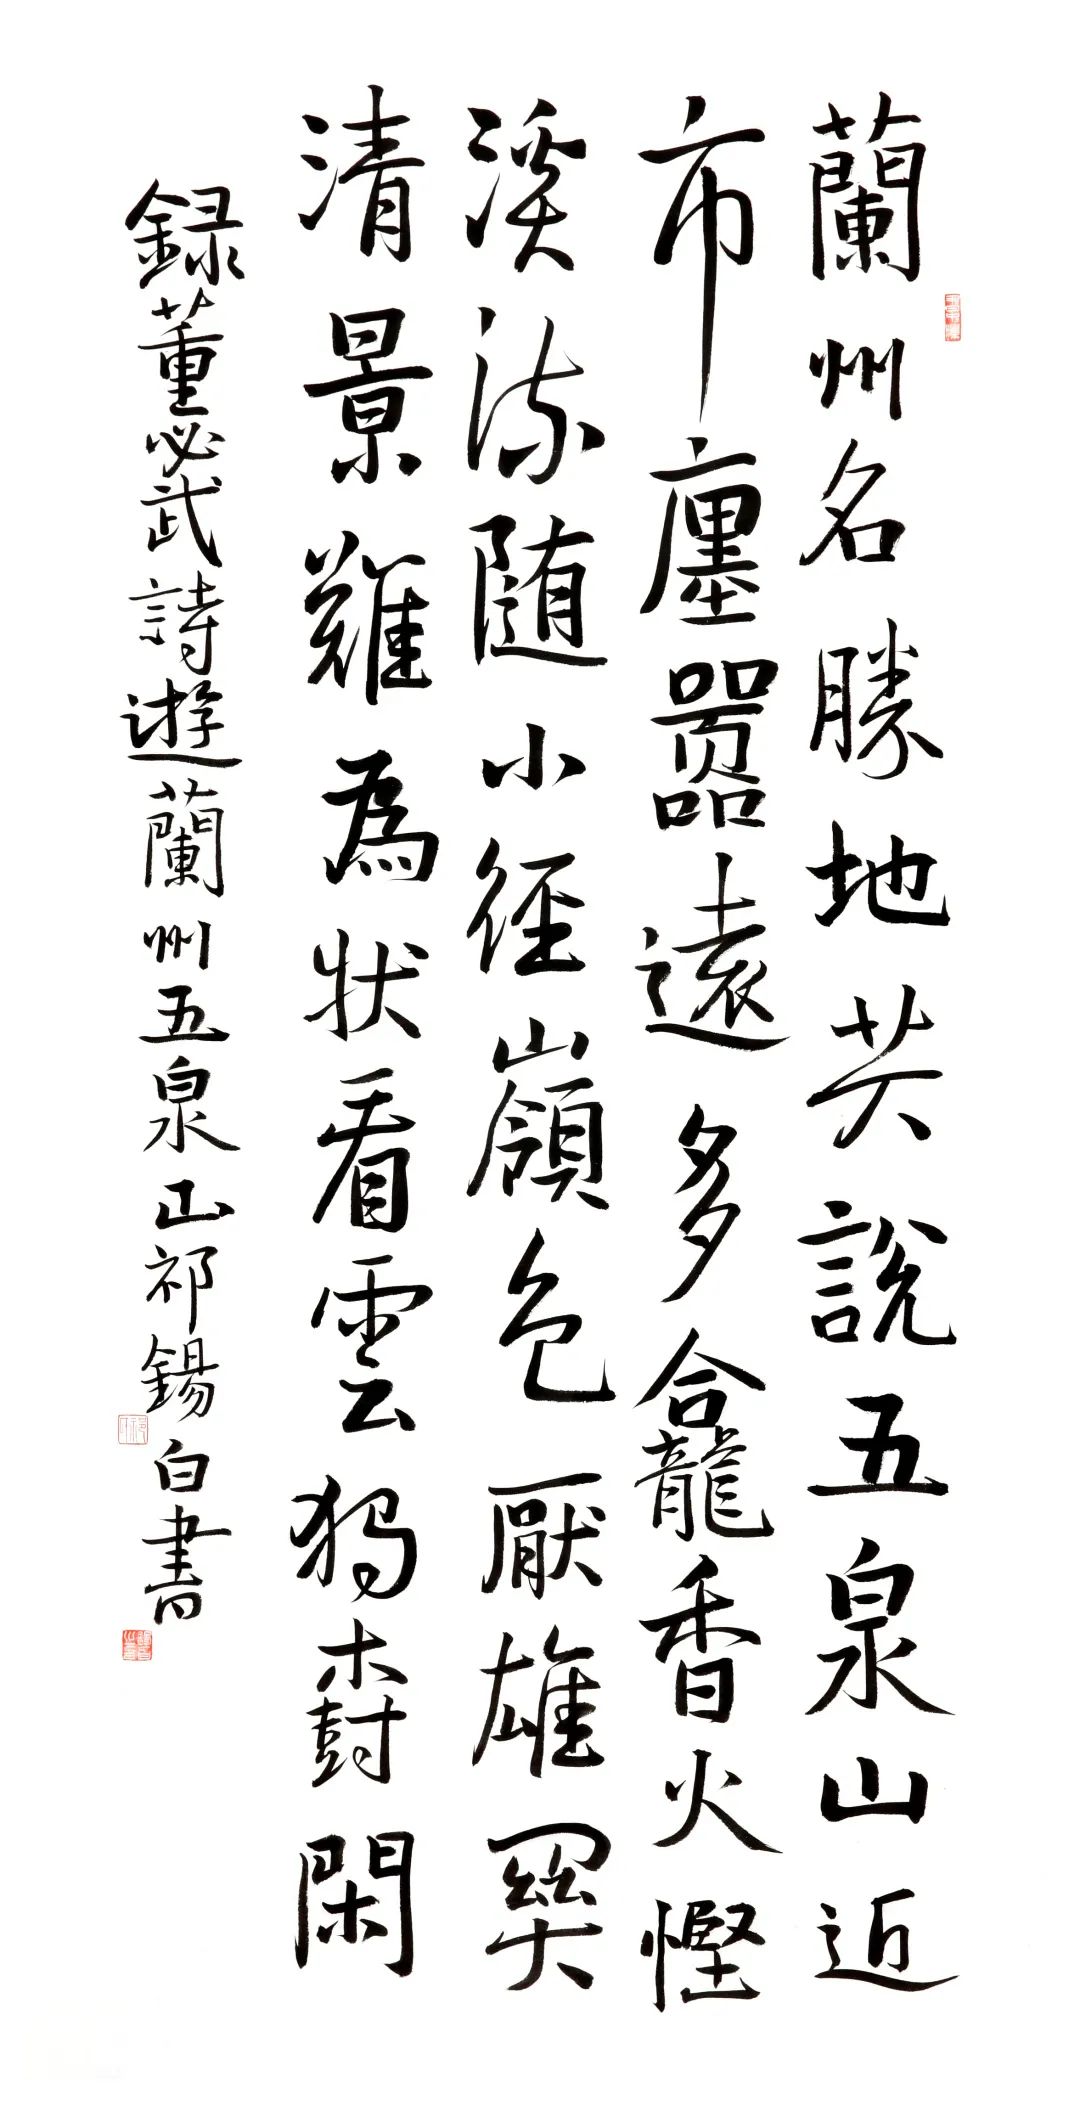 蘭州名勝地共説五泉山近
市廛嚣遠多龕香火慳
溪流随小徑嶺色厭雄關
清景難為狀看雲獨樹閑
録董必武詩遊蘭州五泉山祁錫白書